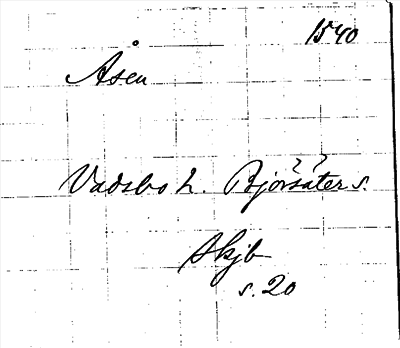 1540
Åsen
Vadsbo h. Björsäter s.
? ?
Skjb
s. 20